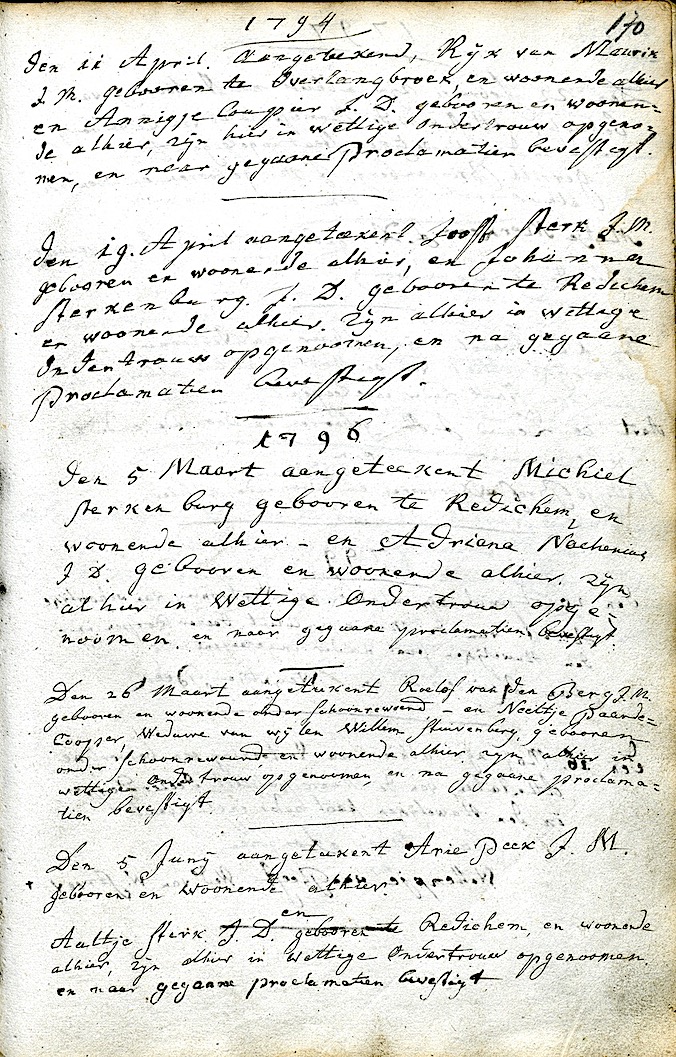 1794
170
Den 11 April. Aangetekend, Ryk van Maurik
J. M. gebooren te Overlangbroek, en woonende alhier
en Annigje Coupier J. D. gebooren en woonen=
de alhier, zijn hier in wettige ondertrouw opgeno=
men, en naar gegaane Proclamatien bevestigt.
Den 19. April aangetekent Joost Sterk J. M.
gebooren en woonende alhier, en Johanna
Sterkenburg. J. D. gebooren te Redichem
en woonende alhier. zijn alhier in wettige
Ondertrouw opgenoomen, en na gegaane
Proclamatien bevestigt.
1796
Den 5 Maart aangeteekent Michiel
Sterkenburg gebooren te Redichem, en
woonende alhier - en Adriana
J D. gebooren en woonende alhier. zijn
alhier in Wettige Ondertrouw opge=
noomen. en naar gegaane proclamatien bevestigt.
Den 26 Maart aangetekent Roelof van den Berg J. M.
gebooren en woonende onder Schoonrewoerd - en Neeltje Paarde=
Cooper, Weduwe van wijlen Willem Stuivenberg, gebooren
onder Schoonrewoerd en woonende alhier. zijn alhier in
wettigen Ondertrouw opgenoomen, en na gegaane proclama=
tien bevestigt
Den 5 Junij aangetekent Arie Peek J. M.
gebooren en woonende alhier.
en
Aaltje Sterk J. D. gebooren te Redichem, en woonende
alhier, zijn alhier in wettige Ondertrouw opgenoomen
en naar gegaane proclamatien bevestigt